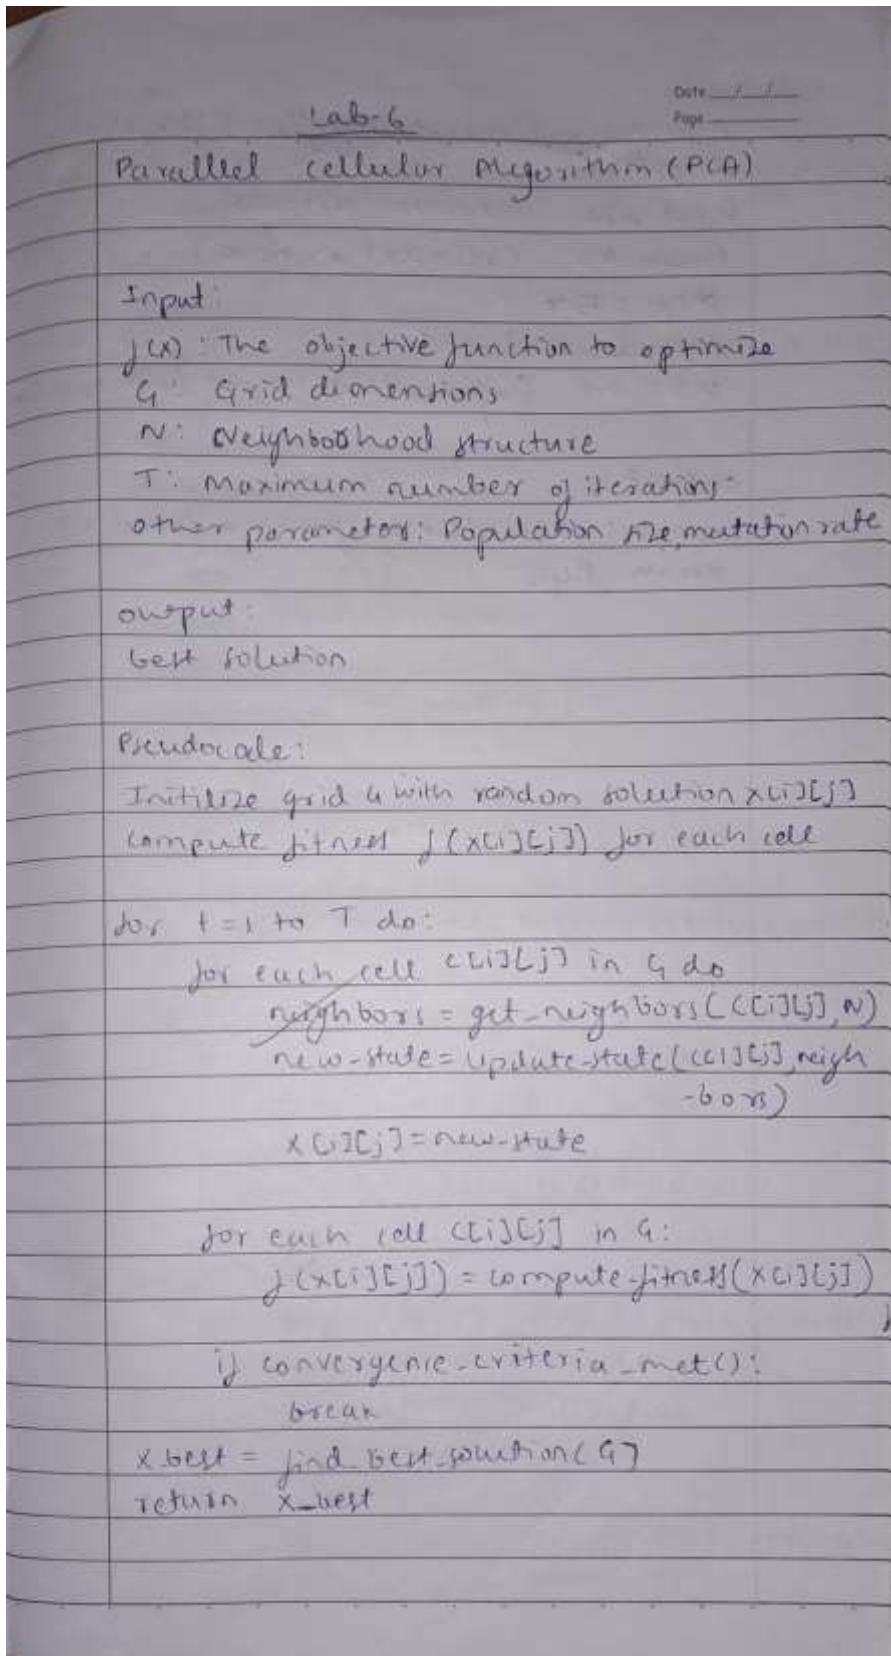 Date __/__/__
Lab-6
Page
Parallel cellular Algorithm (PCA)
Input:
f(x): The objective function to optimize
G: Grid dimentions
N: Neighborhood structure
T: Maximum number of iterations
other parameters: Population size, mutation rate
output:
best solution
Pseudocode:
Initilize grid G with random solution x[i][j]
compute fitness f(x[i][j]) for each cell
for t=1 to T do:
for each cell C[i][j] in G do
neighbors = get_neighbors(C[i][j], N)
new-state = update-state(C[i][j], neigh
-bors)
x[i][j] = new-state
for each cell C[i][j] in G:
f(x[i][j]) = compute-fitness(x[i][j])
if convergence_criteria_met():
break
x_best = find_best_solution(G)
return x_best